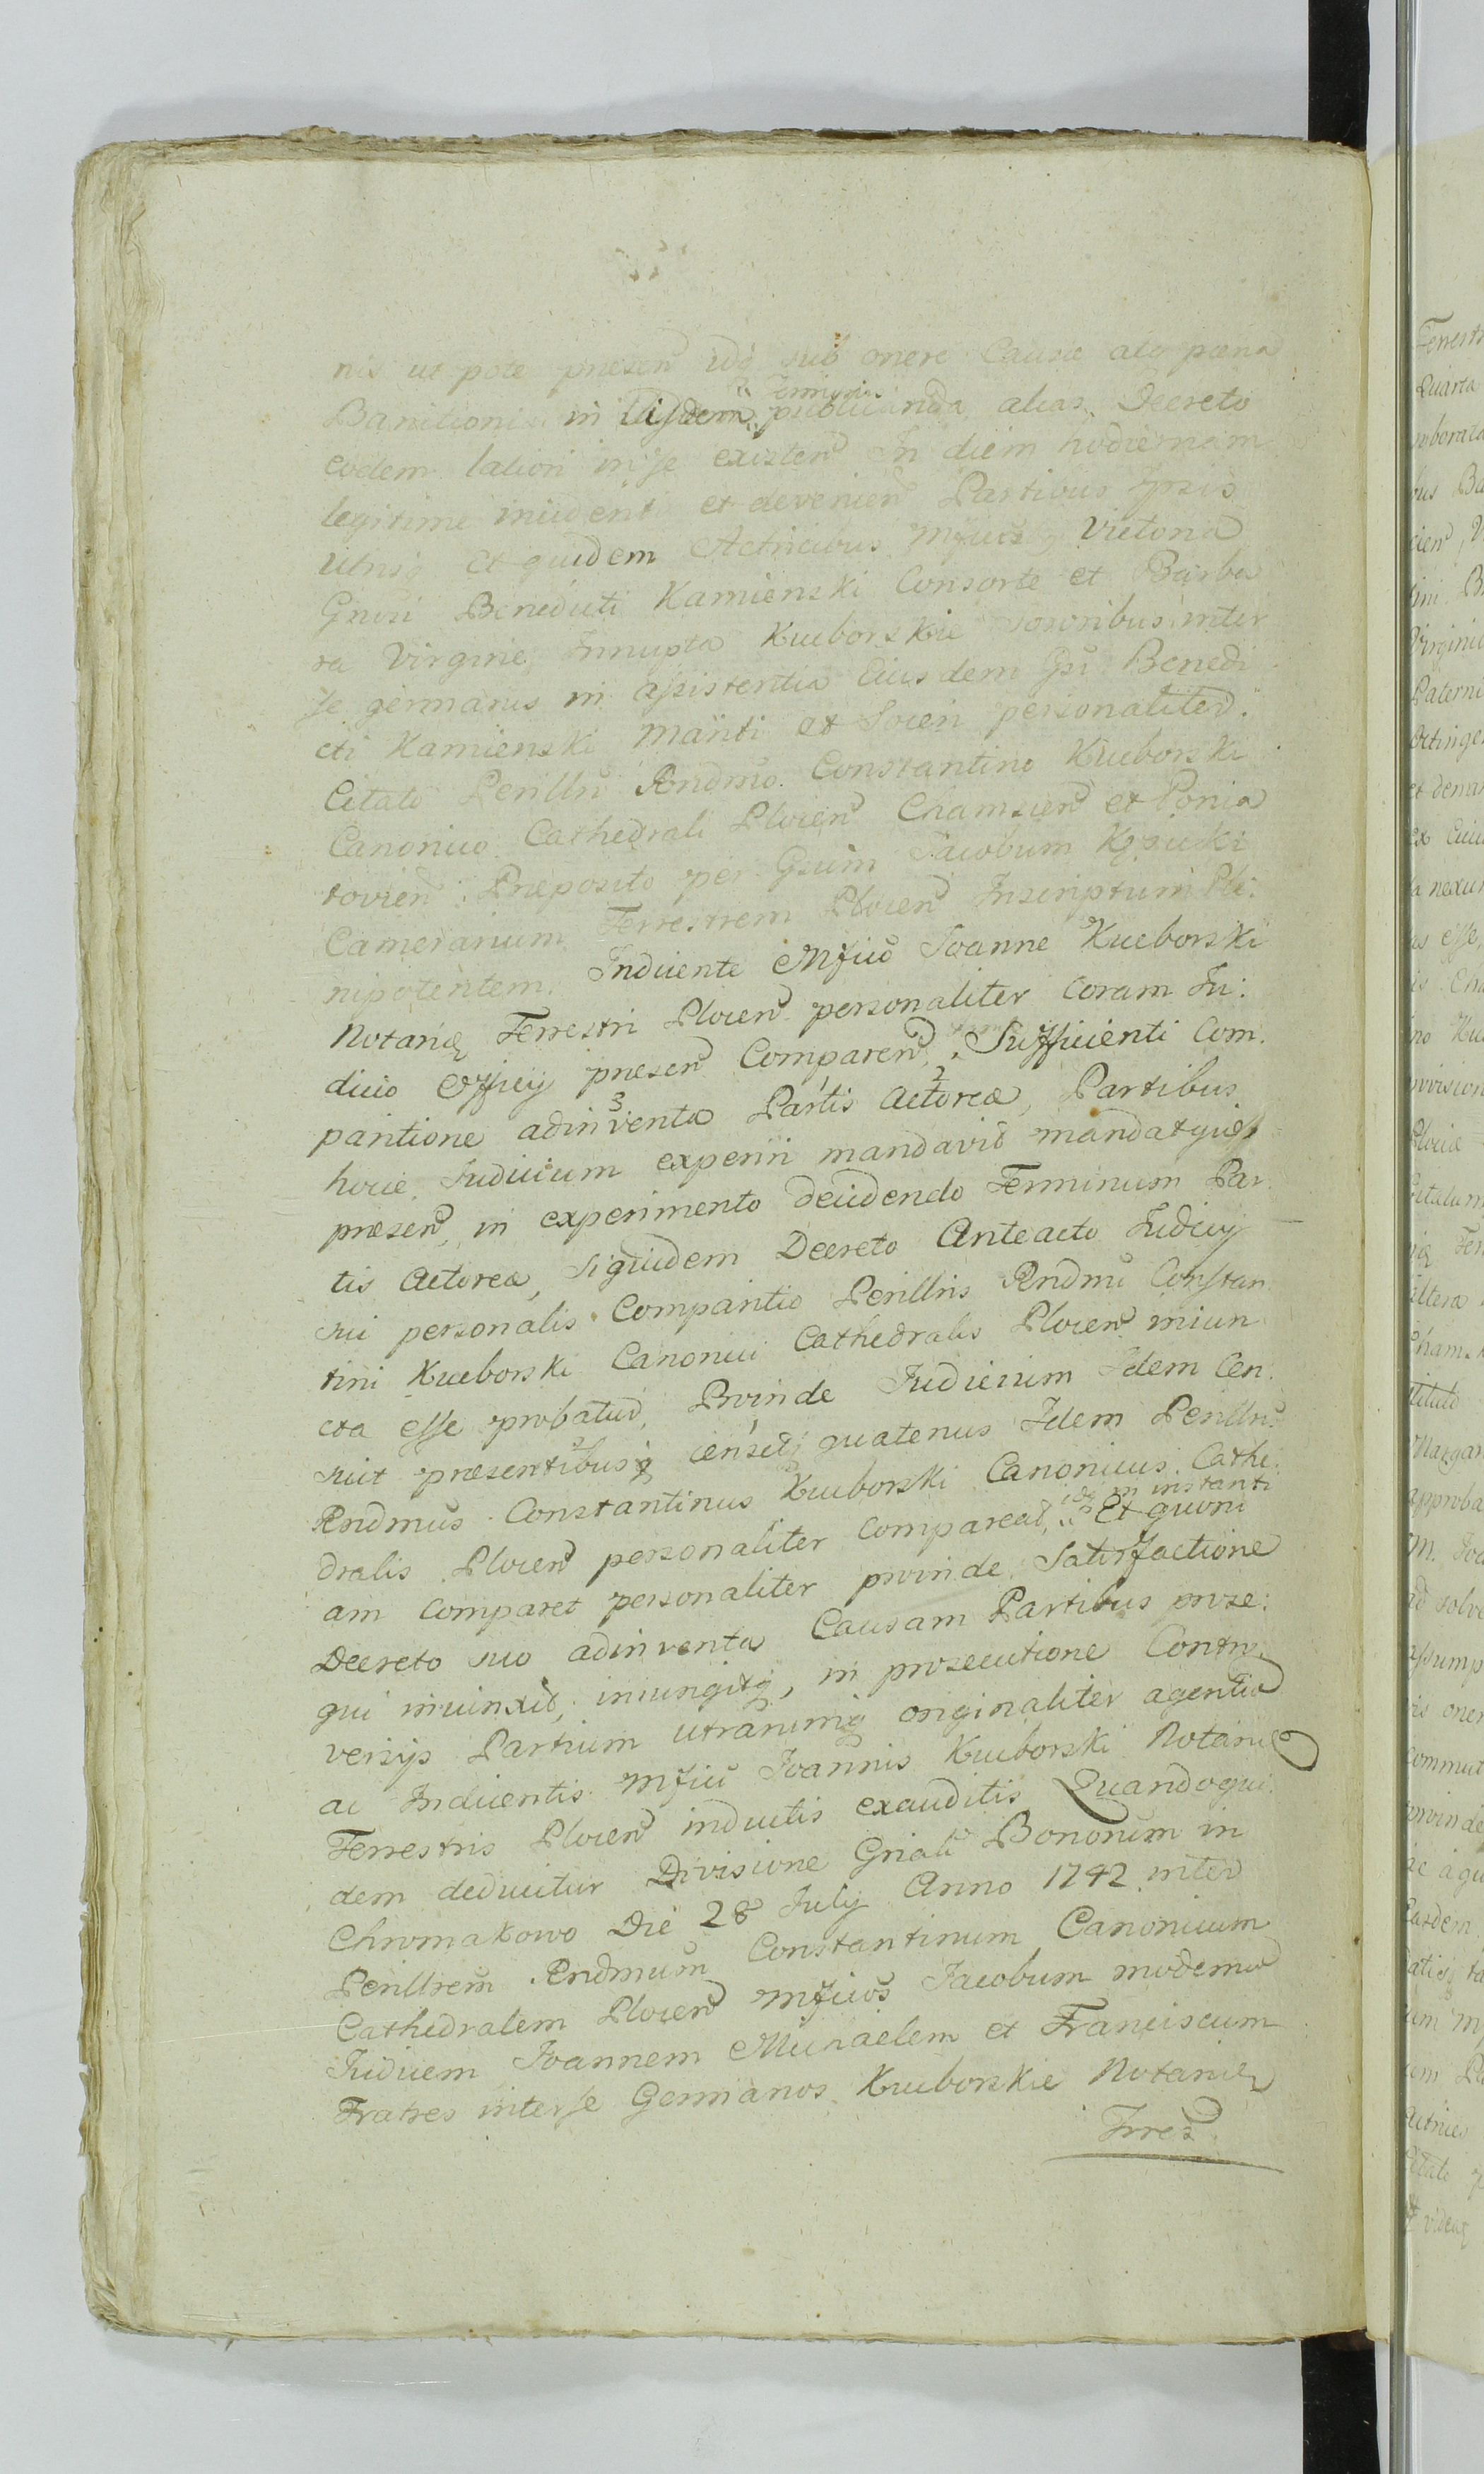 nis ut pote presen idq sub onere Causæ alo pœna
Terminis
Banitionis in Iisdem publicanda alias Decreto
eodem lationi in se existen In diem hodiernam
legitime incident et devenien Partibus Ipsis
Utrisq Et quidem Actricibus Mfcis Victoria
Gnosi Benedicti Kamienski Consorte et Barba
ra Virgine Innupta Kucborskie Sororibus inter
se germanis in assistentia Eiusdem Gsi Benedi
cti Kamienski Mariti et Soceri personaliter.
Citato Perillri Rndmo Constantino Kucborski
Canonico Cathedrali Plocen Chamscen et Ponia
tovien Præposito per Gsum Jacobum
Camerarium Terrestrem Plocen Inscriptum Ple:
nipotentem. Inducente Mfico Joanne Kucborski
Notario Terrestri Plocen personaliter Coram Iu:
dicio Officij presen Comparen, Sufficienti Com:
3 1 2
paritione adinventa Partis Actoreæ, Partibus
hocce Judicium experiri mandavit mandatque
præsen, in experimento decidendo Terminum Par
tis Actoreæ, Siquidem Decreto Anteacto Judicij
sui personalis Comparitio Perillris Rndmi Constan
tini Kucborski Canonici Cathedralis Plocen iniun
cta esse probatur, Proinde Judicium Idem Cen:
2 1
suit præsentibusq censetq quatenus Idem Perillris
Rndmus Constantinus Kucborski Canonicus Cathe:
idq in instanti
dralis Plocen personaliter compareat, Et quoni
am Comparet personaliter proinde Satisfactione
Decreto suo adinventa Causam Partibus prose:
qui iniunxit, iniungitq, in prosecutione Contro
versijs Partium utrarumq originaliter agentia
ac Inducentis Mfici Joannis Kucborski Notarii
Terrestris Plocen inductis exauditis Quandoqui
dem deducitur Divisione Gnali Bonorum in
Chromakowo Die 28 July Anno 1742 inter
Perillrem Rndmum Constantinum Canonicum
Cathedralem Plocen Mficos Jacobum modernum
Judicem Joannem Michaelem et Franciscum
Fratres inter se Germanos Kucborskie Notarios
Trres